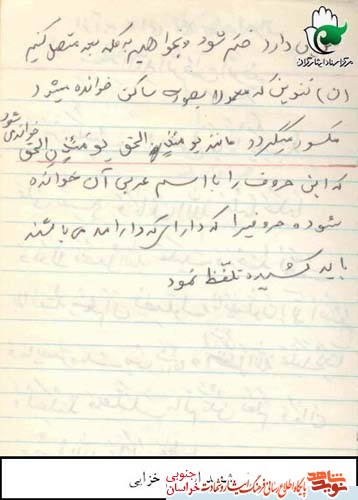 مرکز اسناد ایثارگران
دارد ختم شود و بخواهیم به کلمه بعد متصل کنیم
(ن) تنوین که معمولا بصورت ساکن خوانده میشود
مکسور میگردد مانند یومئذٍ الحق یومئذن الحق خوانده می شود
که این حروف را با اسم عربی آن خوانده
شوده حروفیرا که دارای مد می باشند
باید کشیده تلفّظ نمود
شهید
خزایی
نوید شاهد پایگاه اطلاع رسانی فرهنگ ایثار و شهادت خراسان جنوبی